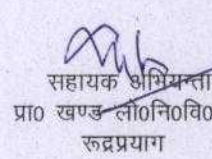 सहायक अभियन्ता
प्रा० खण्ड लो०नि०वि०
रूद्रप्रयाग